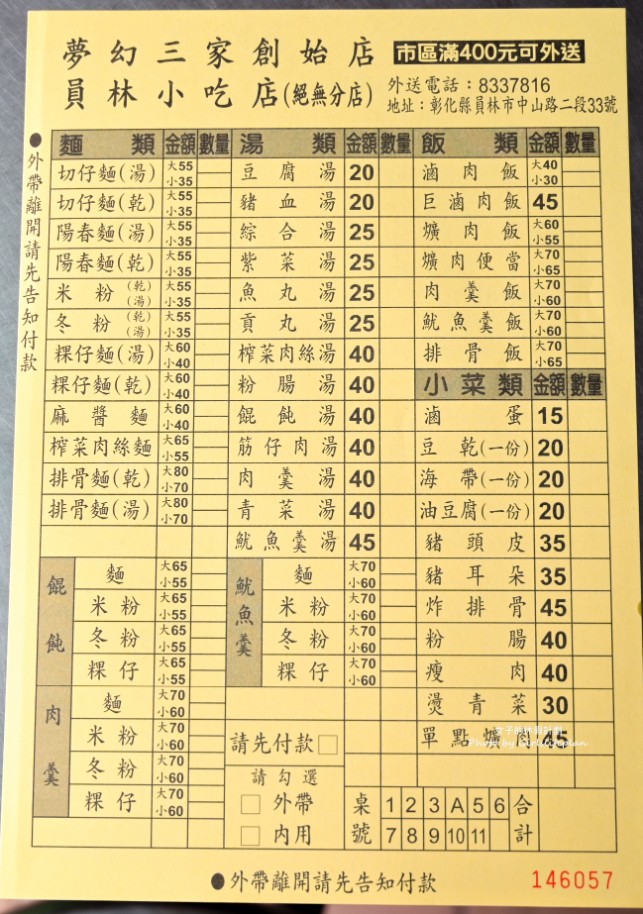 夢幻三家創始店 市區滿400元可外送
員林小吃店(絕無分店) 外送電話：8337816
地址：彰化縣員林市中山路二段33號
●外帶離開請先告知付款
麵類 金額 數量 湯類 金額 數量 飯類 金額 數量
切仔麵(湯) 大55 小35 豆腐湯 20 滷肉飯 大40 小30
切仔麵(乾) 大55 小35 豬血湯 20 巨滷肉飯 45
陽春麵(湯) 大55 小35 綜合湯 25 爌肉飯 大60 小55
陽春麵(乾) 大55 小35 紫菜湯 25 爌肉便當 大70 小65
米粉(乾)(湯) 大55 小35 魚丸湯 25 肉羹飯 大70 小60
冬粉(乾)(湯) 大55 小35 貢丸湯 25 魷魚羹飯 大70 小60
粿仔麵(湯) 大60 小40 榨菜肉絲湯 40 排骨飯 大70 小65
粿仔麵(乾) 大60 小40 粉腸湯 40 小菜類 金額 數量
麻醬麵 大60 小40 餛飩湯 40 滷蛋 15
榨菜肉絲麵 大65 小55 筋仔肉湯 40 豆乾(一份) 20
排骨麵(乾) 大80 小70 肉羹湯 40 海帶(一份) 20
排骨麵(湯) 大80 小70 青菜湯 40 油豆腐(一份) 20
魷魚羹湯 45 豬頭皮 35
餛飩 麵 大65 小55 魷魚羹 麵 大70 小60 豬耳朵 35
米粉 大65 小55 米粉 大70 小60 炸排骨 45
冬粉 大65 小55 冬粉 大70 小60 粉腸 40
粿仔 大65 小55 粿仔 大70 小60 瘦肉 40
肉羹 麵 大70 小60 燙青菜 30
米粉 大70 小60 請先付款□ 單點爌肉 45
冬粉 大70 小60 請勾選
粿仔 大70 小60 □外帶 桌號 1 2 3 A 5 6 合計
□內用 7 8 9 10 11
●外帶離開請先告知付款 146057